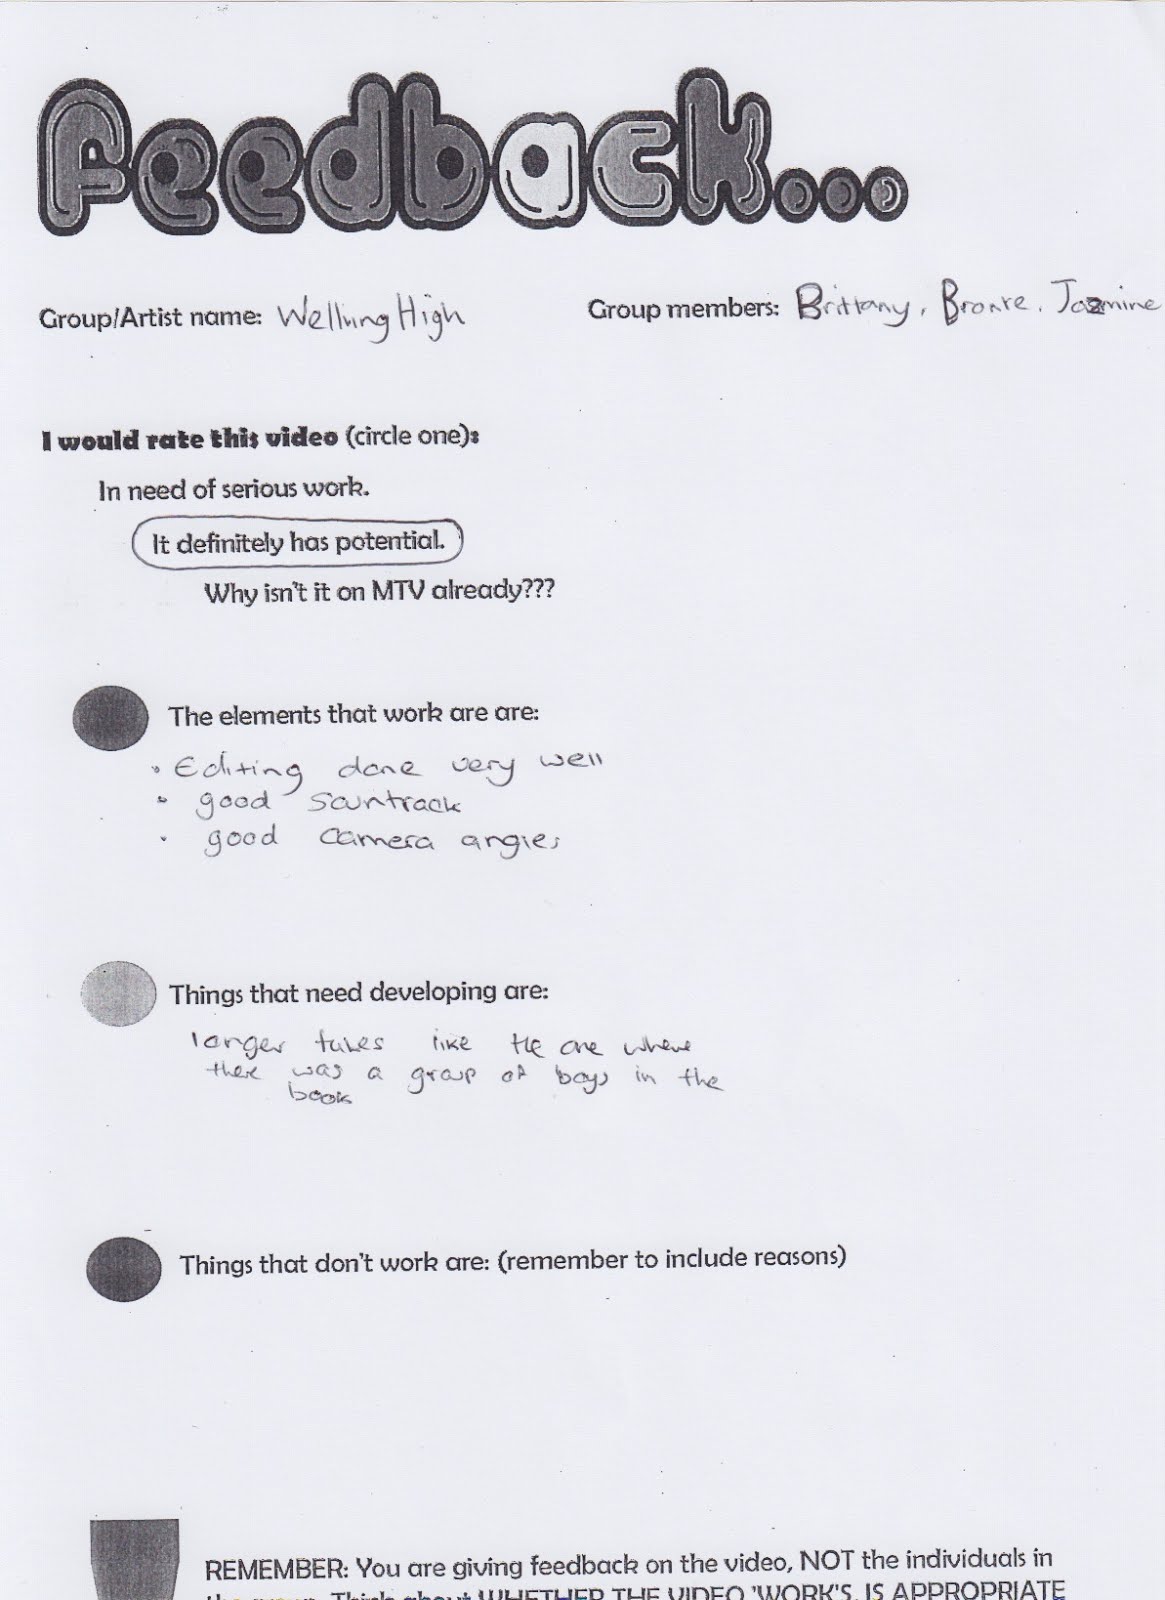 Feedback...
Group/Artist name: Welling High
Group members: Brittany, Bronte, Jazmine
I would rate this video (circle one):
In need of serious work.
It definitely has potential.
Why isn't it on MTV already???
The elements that work are are:
• Editing done very well
• good sountrack
• good camera angles
Things that need developing are:
longer takes like the one where
there was a group of boys in the
book
Things that don't work are: (remember to include reasons)
REMEMBER: You are giving feedback on the video, NOT the individuals in
the group. Think about WHETHER THE VIDEO 'WORK'S, IS APPROPRIATE